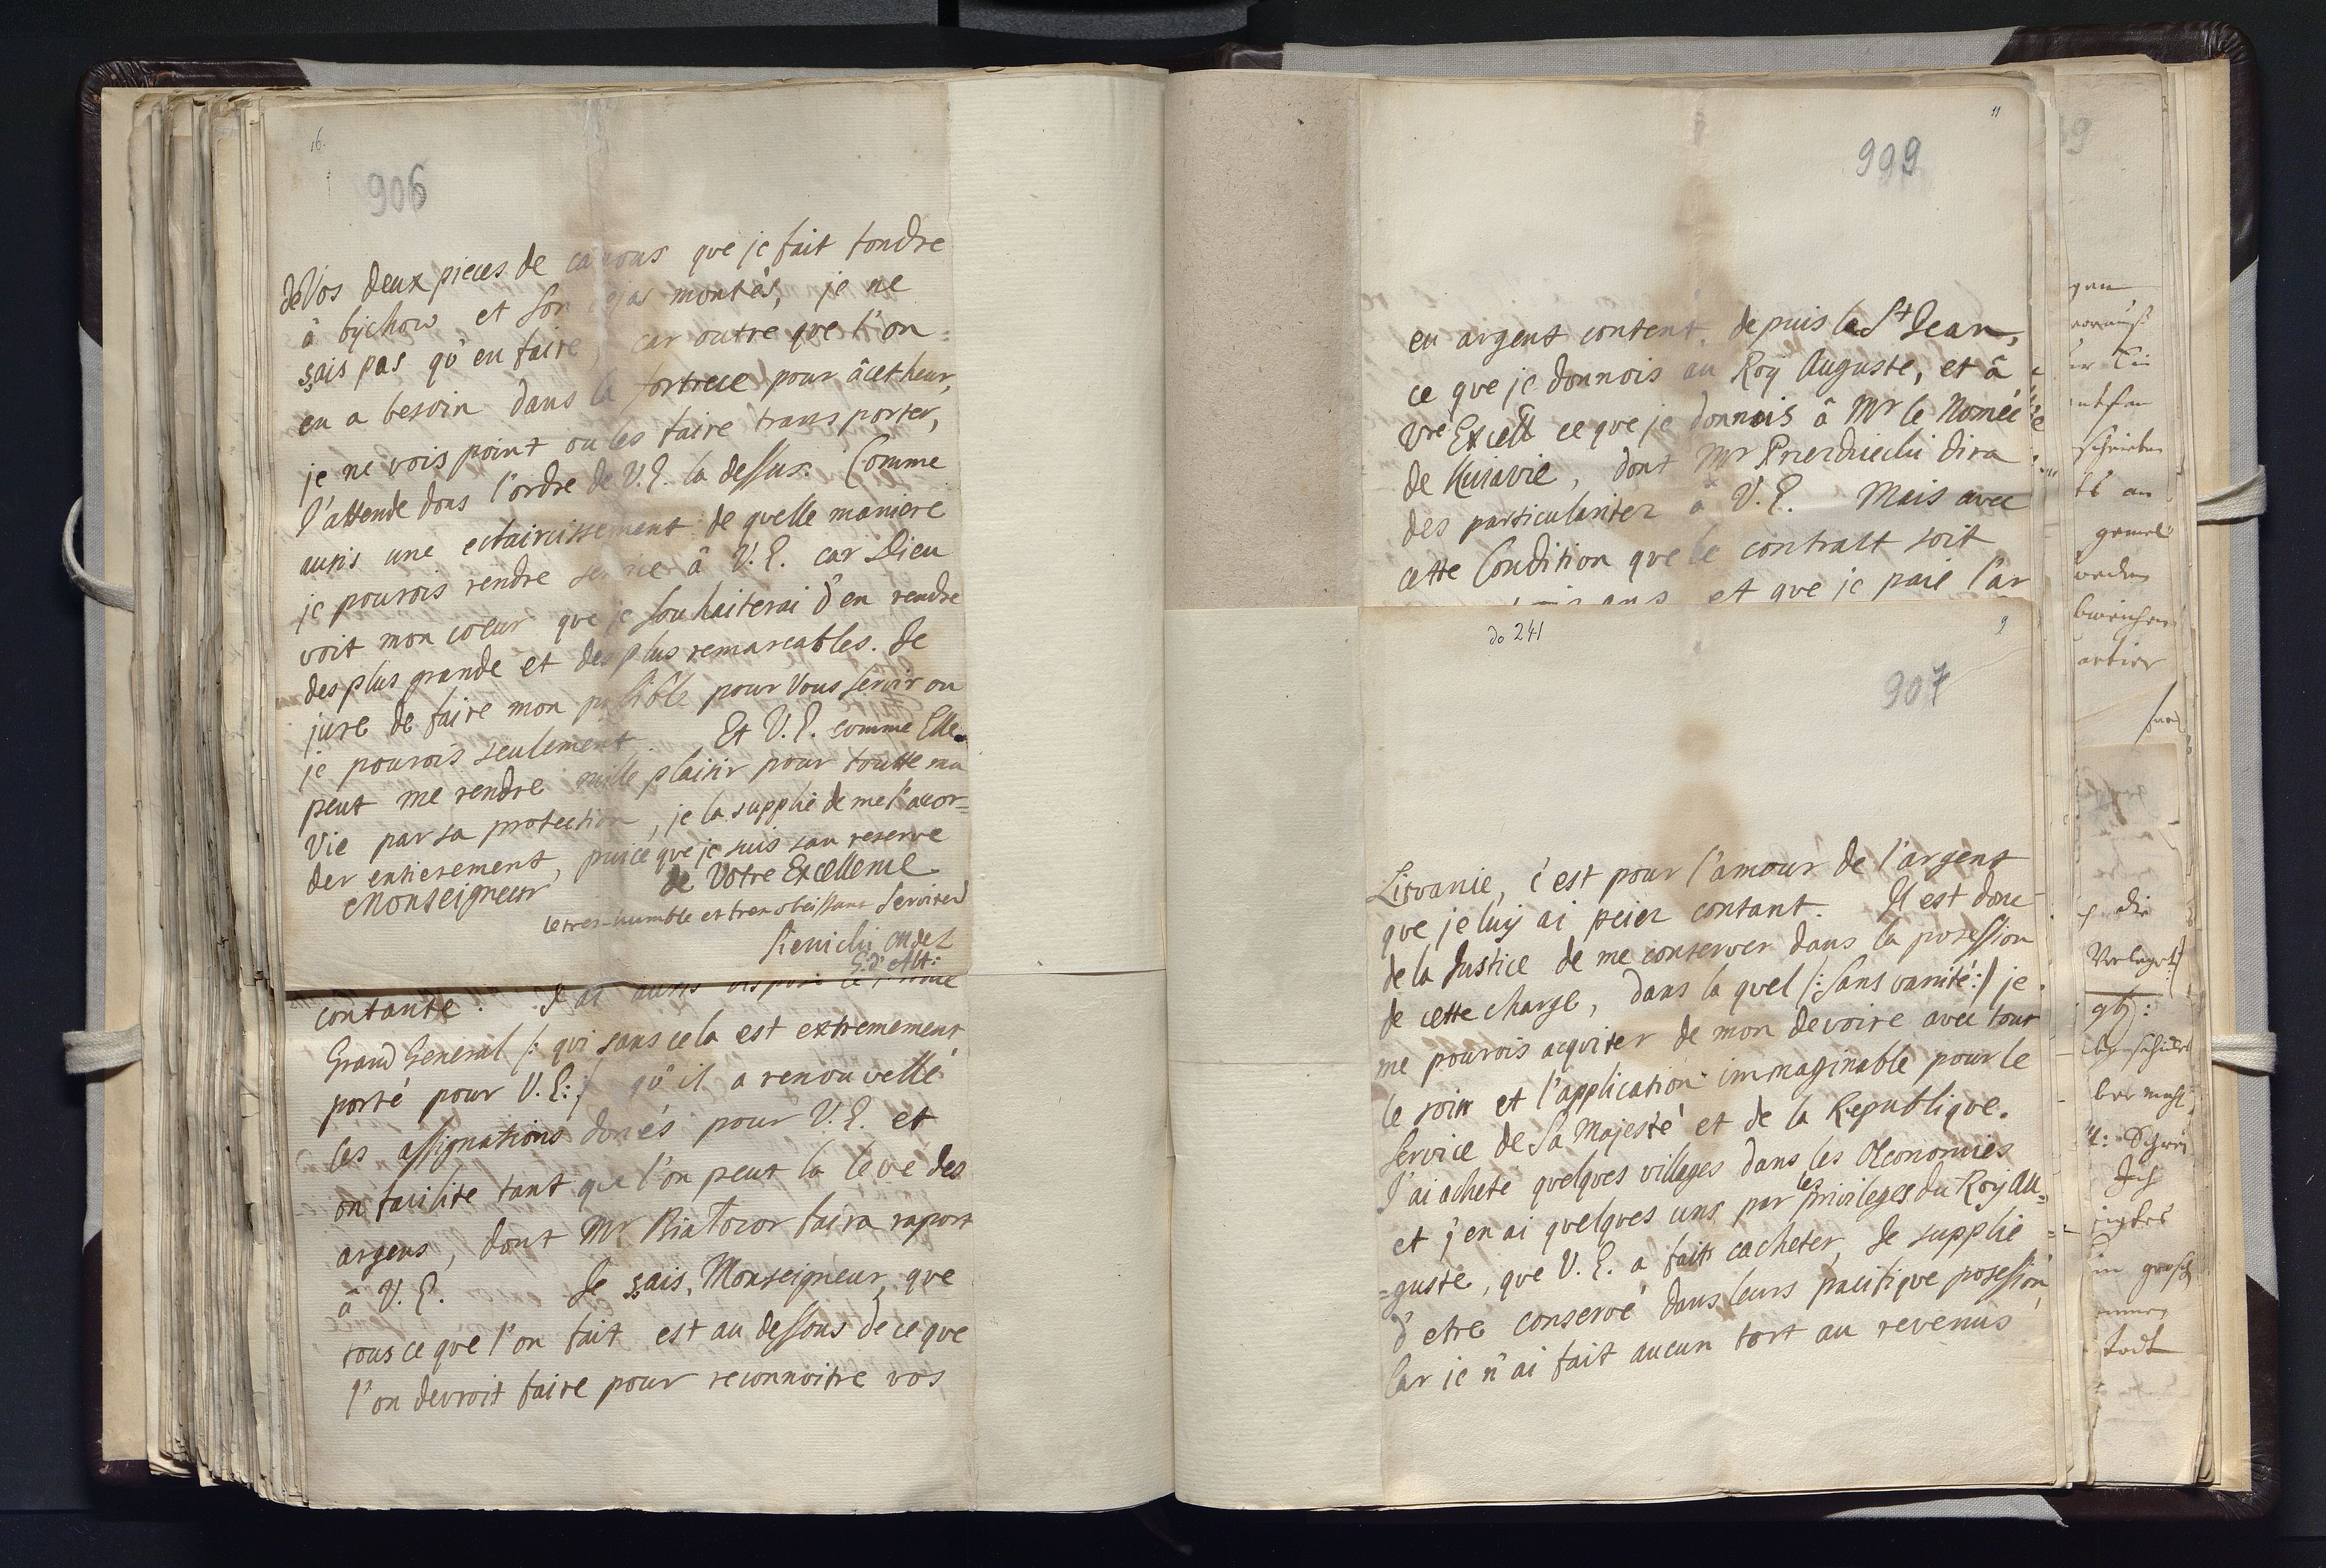 16.
906
de Vos deux pieces de canons que je fait fondre
â bychow et son montés, je ne
sais pas qu'en faire, car outre que l'on
en a besoin dans la fortrece pour âcetheur,
je ne vois point ou les faire transporter,
J'attende dons l'ordre de V. E. la dessus. Comme
aussi une eclaircissement de quelle maniere
je pourois rendre service â V. E. car Dieu
voit mon coeur que je souhaiterai d'en rendre
des plus grande et des plus remarcables. Je
jure de faire mon possible pour Vous servir ou
je pourois seulement. Et V. E. comme Elle
peut me rendre mille plaisir pour toutte ma
Vie par sa protection, je la supplie de me l'accor=
der entierement, puice que je suis san reserve
Monseigneur de Votre Excellence
le tres-humble et tres obeissant Serviteur
contante. J'ai aussi disposé
Grand General /: qui sans cela est extremement
porté pour V. E :/ qu'il a renouvellé
les assignations donés pour V. E. et
on facilite tant que l'on peut la leve des
argens, dont Mr Biatozor faira raport
â V. E. Je sais, Monseigneur, que
tous ce que l'on fait est au dessous de ce que
l'on devroit faire pour reconnoitre vos
11
999
en argent content, depuis la St Jean,
ce que je donnois au Roÿ Auguste, et â
Vre Excell ce que je donnois â Mr le
de Kuiavie, dont Mr dira
des particulariter â V. E. Mais avec
cette Condition que le contract soit
ans et que je paie l'ar
do 241
9
907
Litvanie, c'est pour l'amour de l'argent
que je luÿ ai peier contant. Il est donc
de la Justice de me conserver dans la posession
de cette charge, dans la quel /: sans vanité :/ je
me pourois acquiter de mon devoire avec tour
le soin et l'application immaginable pour le
Service de Sa Majesté et de la Republique.
J'ai acheté quelques villages dans les Oeconomies
et j'en ai quelques uns par les privileges du Roÿ Au=
=guste, que V. E. a fait cacheter, Je supplie
d'etre conservé dans leurs pacifique posession
Car je n'ai fait aucun tort au revenus